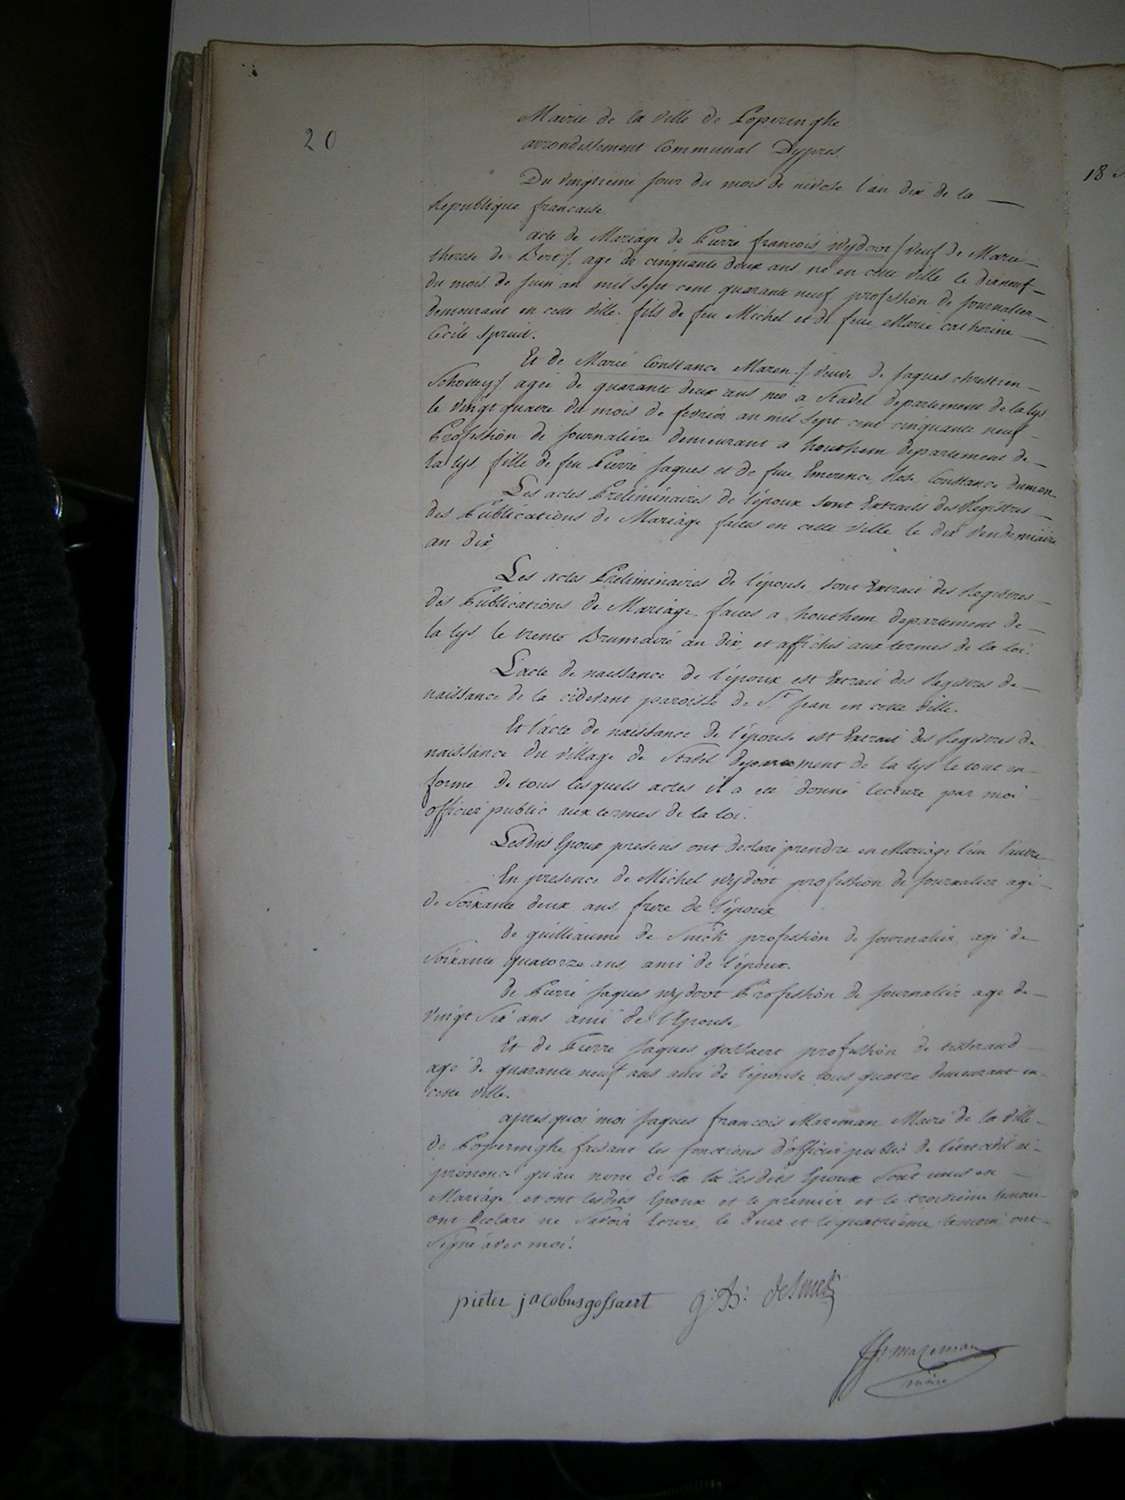 20
Mairie de la ville de Poperinghe
arrondissement Communal Dypres
Du vingtieme jour du mois de nivose l'an dix de la
Republique francaise.
acte de Mariage de Pierre francois wydoot / veuf de Marie
therese de Bert / agé de cinquante deux ans né en cette ville le dixneuf
du mois de juin an mil sept cent quarante neuf profession de journalier
demeurant en cette ville. fils de feu Michel et de feue Marie catherine
Cecile Spruit.
Et de Marie Constance Maren / veuve de jaques chretien
agée de quarante deux ans née a Stadel departement de la lys
le vingt quatre du mois de fevrier an mil sept cent cinquante neuf
Profession de journaliere demeurant a houthem departement de
la lys fille de feu Pierre jaques et de feue Emerence Rose Constance
Les actes Preliminaires de l'époux sont Extraits des Registres
des Publications de Mariage faites en cette ville le dix vendemiaire
an dix
Les actes Preliminaires de l'épouse sont Extrait des Registres
des Publications de Mariage faites a houthem departement de
la lys le trente Brumaire an dix, et affichés aux termes de la loi.
L'acte de naissance de l'époux est Extrait des Registres de
naissance de la cidevant paroisse de St jean en cette ville.
Et l'acte de naissance de l'épouse est Extrait des Registres de
naissance du village de Stadel departement de la lys le tout en
forme de tous lesquels actes il a été donné lecture par moi
officier public aux termes de la loi.
Lesdits Epoux presens ont declaré prendre en Mariage l'un l'autre
En presence de Michel wydoot profession de journalier agé
de Soixante deux ans frere de l'époux
de guilliaume de Smet profession de journalier agé de
Soixante quatorze ans ami de l'époux.
de Pierre jaques wydoot Profession de journalier agé de
vingt Six ans ami de l'Epouse
Et de Pierre jaques gossaert profession de tisserand
agé de quarante neuf ans ami de l'épouse tous quatre demeurant en
cette ville.
apres quoi moi jaques francois Mazeman Maire de la ville
de Poperinghe faisant les fonctions d'officier public de l'état civil ai
prononcé qu'au nom de la loi lesdits Epoux Sont unis en
Mariage et ont lesdits Epoux et le premier et le troisieme temoin
ont declaré ne Savoir Ecrire, le deux et le quatrieme temoin ont
Signé avec moi.
pieter jacobus gossaert g: B: deSmet
mazeman
maire
18